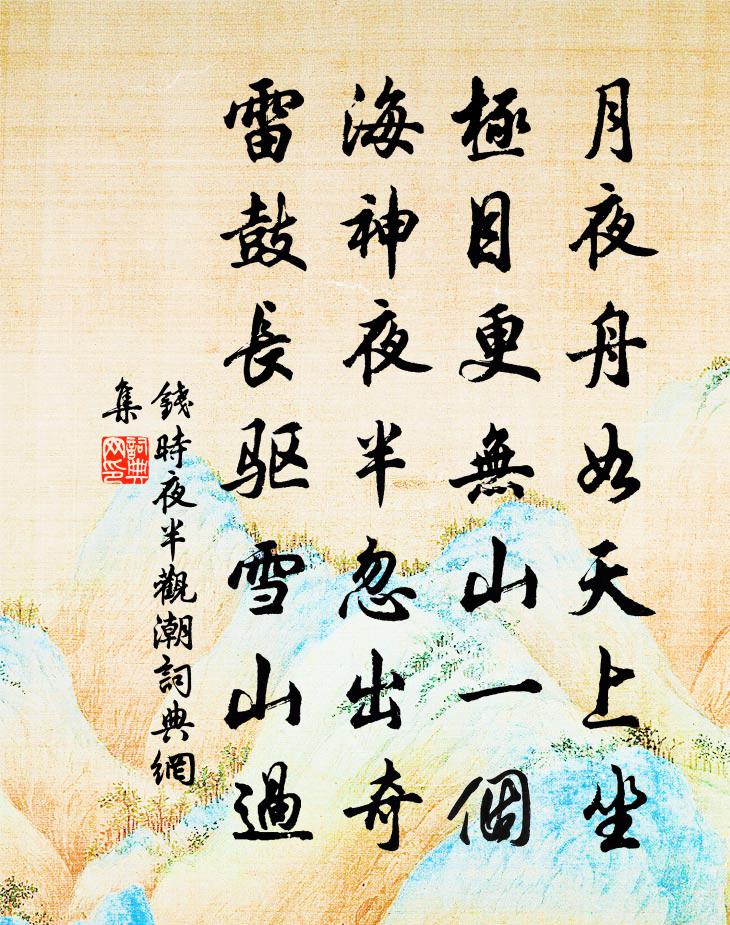 月夜舟如天上坐
極目更無山一個
海神夜半忽出奇
雷鼓長驱雪山過
錢時夜半觀潮詞典網
集
詞典
网印